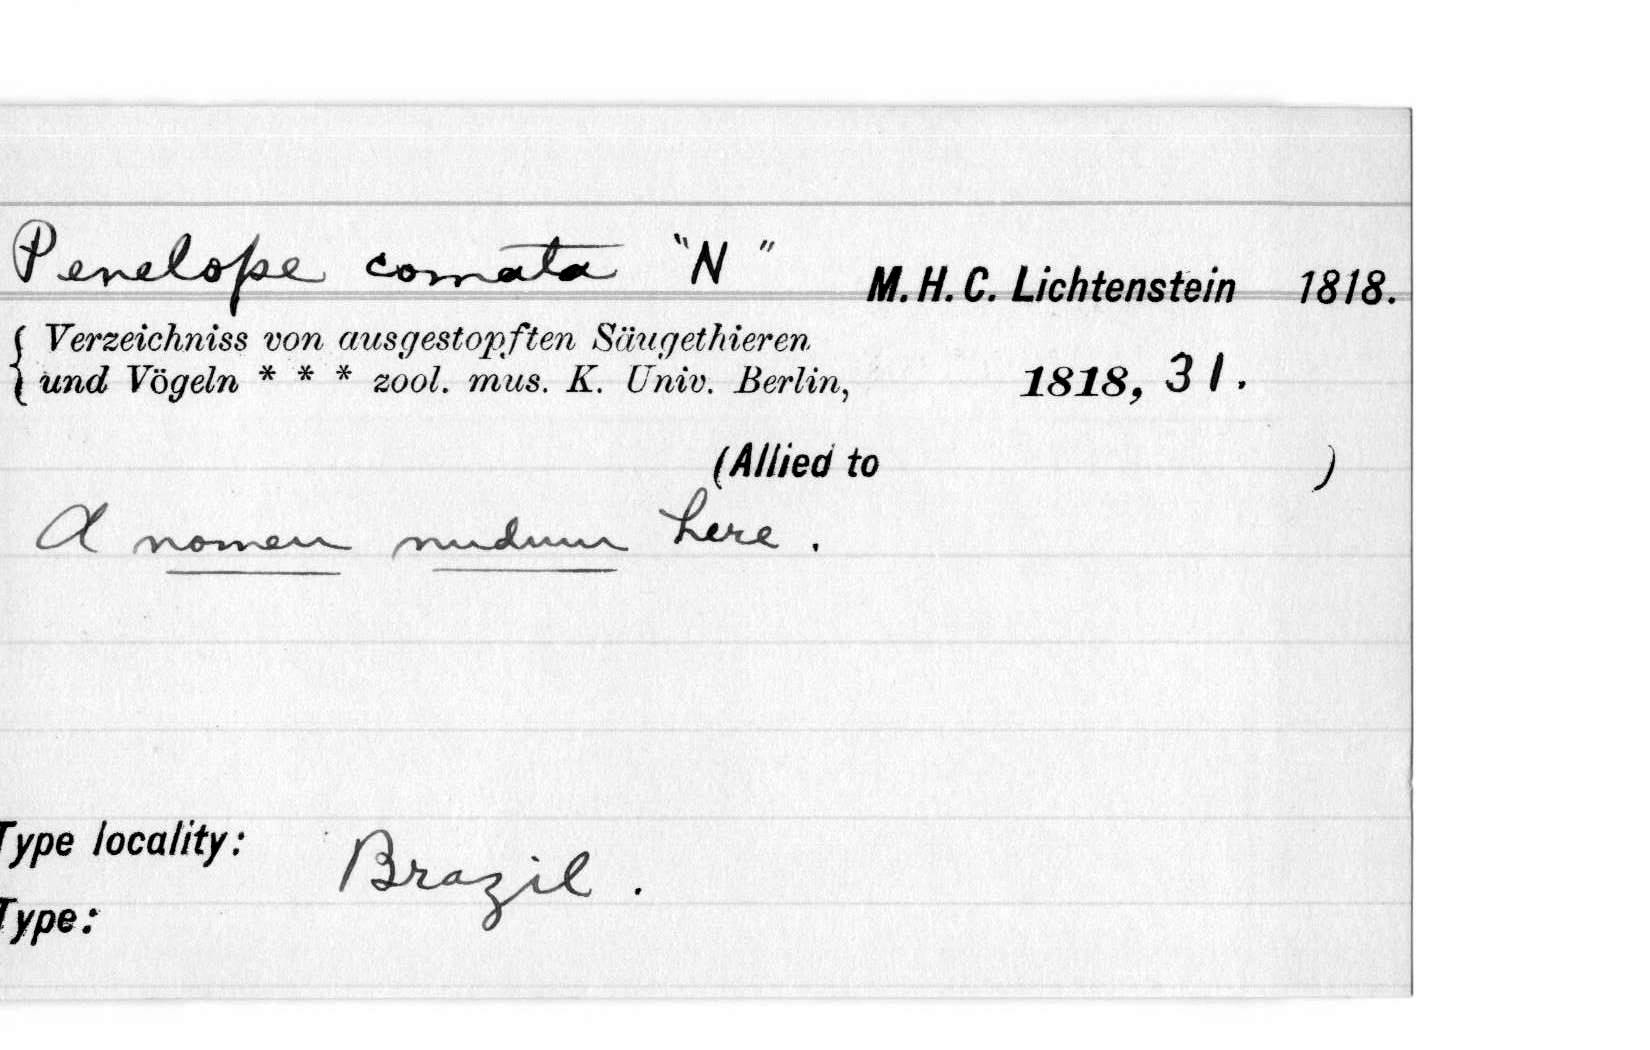 Penelope comata "N" M. H. C. Lichtenstein 1818.
{ Verzeichniss von ausgestopften Säugethieren
und Vögeln * * * zool. mus. K. Univ. Berlin, 1818, 31.
(Allied to )
A nomen nudum here.
Type locality: Brazil.
Type: